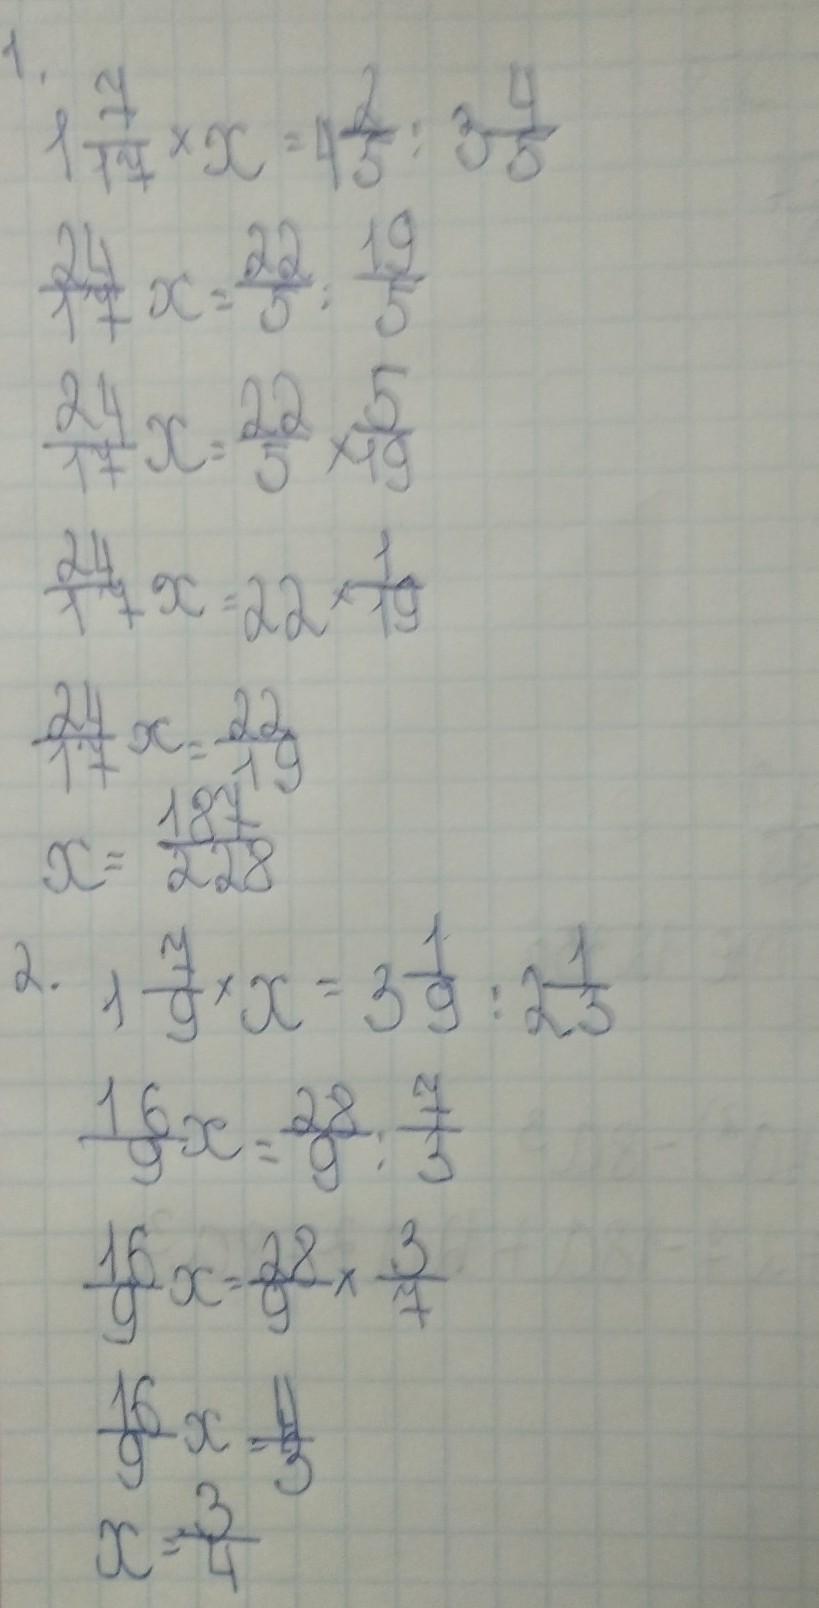 1.
1 7/17 × x = 4 2/5 : 3 4/5
24/17 x = 22/5 : 19/5
24/17 x = 22/5 × 5/19
24/17 x = 22 × 1/19
24/17 x = 22/19
x = 187/228
2. 1 7/9 × x = 3 1/9 : 2 1/3
16/9 x = 28/9 : 7/3
16/9 x = 28/9 × 3/7
16/9 x = 4/3
x = 3/4